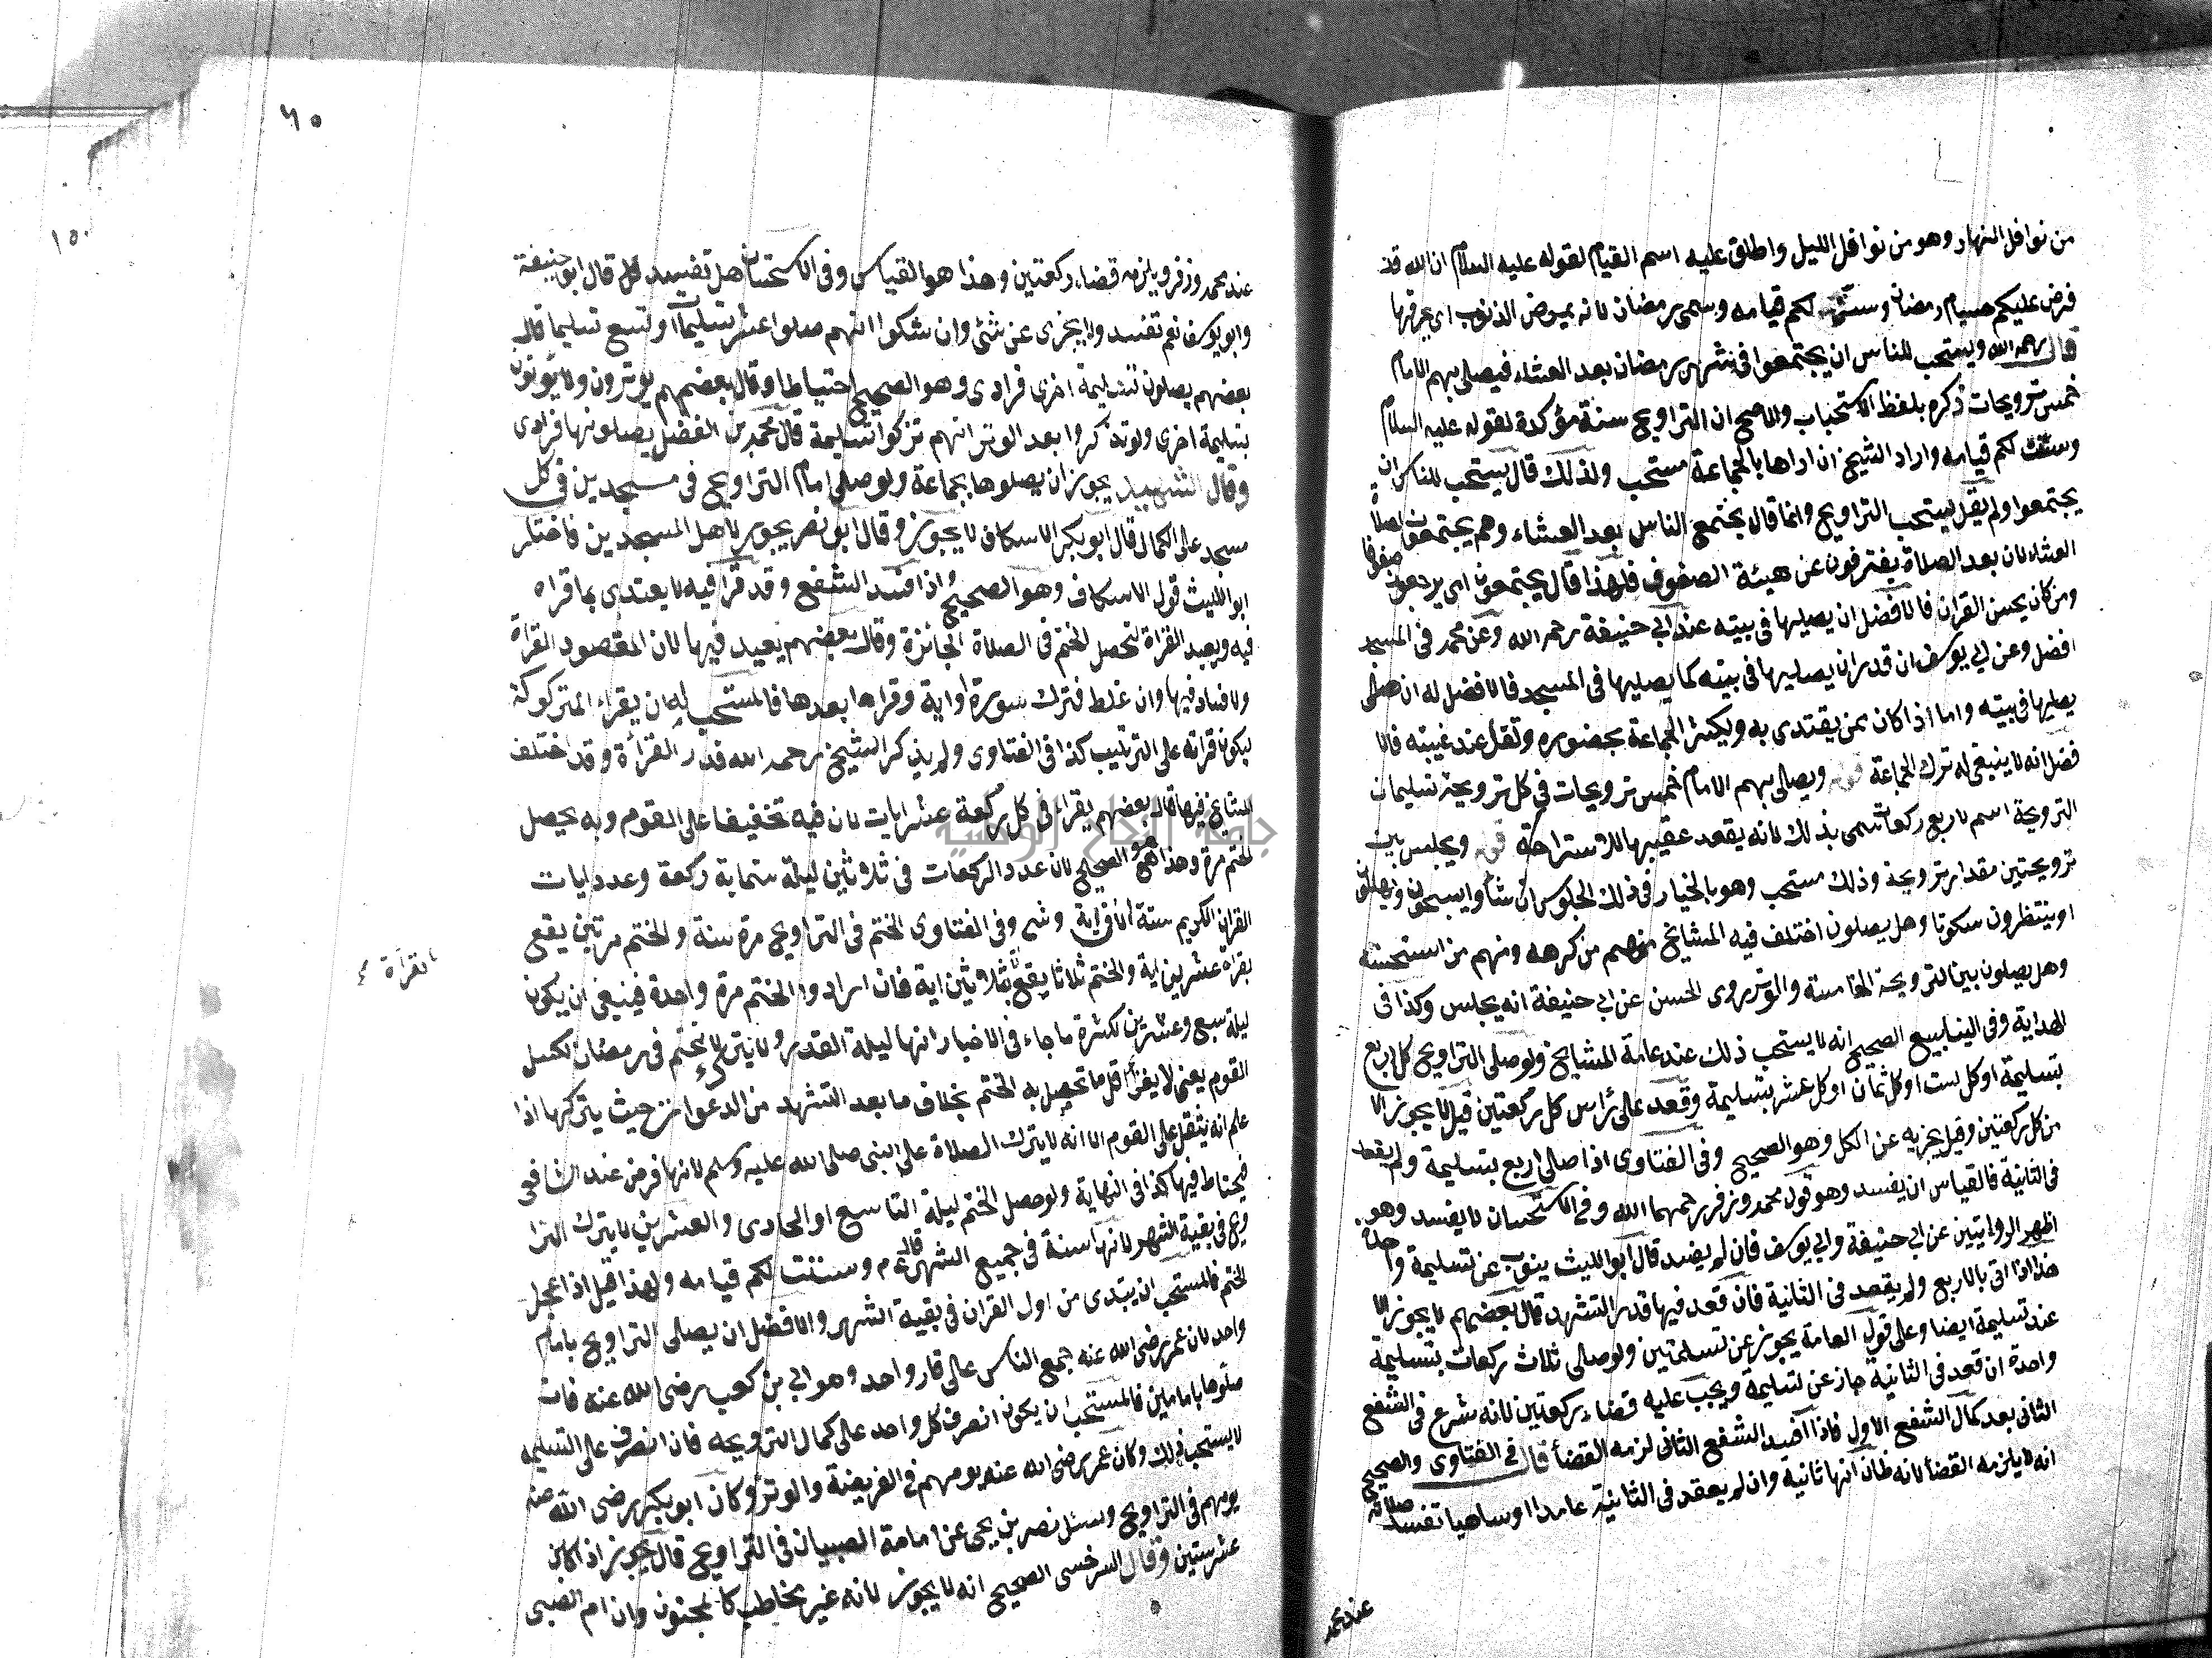 من نوافل النهار وهو من نوافل الليل واطلق عليه اسم القيام لقوله عليه السلام ان الله قد
فرض عليكم صيام رمضان وسننت لكم قيامه وسمى رمضان لانه يرمض الذنوب اى يحرقها
قال رحمه الله ويستحب للناس ان يجتمعوا فى شهر رمضان بعد العشاء فيصلى بهم الامام
خمس ترويحات ذكره بلفظ الاستحباب والاصح ان التراويح سنة مؤكدة لقوله عليه السلام
وسننت لكم قيامه واراد الشيخ ان اداها بالجماعة مستحب ولذلك قال يستحب للناس ان
يجتمعوا ولم يقل يستحب التراويح وانما قال يجتمع الناس بعد العشاء وهم يجتمعون لصلاة
العشاء لان بعد الصلاة يفترقون عن هيئة الصفوف فلهذا قال يجتمعون اى يرجعون صفوفا
ومن كان يحسن القران فالافضل ان يصليها فى بيته عند ابي حنيفة رحمه الله وعن محمد فى المسجد
افضل وعن ابي يوسف ان قدر ان يصليها فى بيته كما يصليها فى المسجد فالافضل له ان يصلى
يصليها فى بيته واما اذا كان ممن يقتدى به ويكثر الجماعة بحضوره وتقل عند غيبته فالا
فضل انه لا ينبغى له ترك الجماعة قوله ويصلى بهم الامام خمس ترويحات فى كل ترويحة تسليمان
الترويحة اسم لاربع ركعات سمى بذلك لانه يقعد عقيبها للاستراحة قوله ويجلس بين
ترويحتين مقدار ترويحة وذلك مستحب وهو بالخيار فى ذلك الجلوس ان شاوا يسبحون ويهللون
او ينتظرون سكوتا وهل يصلون اختلف فيه المشائخ منهم من كرهه ومنهم من استحسنه
وهل يصلون بين الترويحة الخامسة والوتر روى الحسن عن ابي حنيفة انه يجلس وكذا فى
الهداية وفى الينابيع الصحيح انه لا يستحب ذلك عند عامة المشايخ ولو صلى التراويح كل اربع
بتسليمة او كل ست او كل ثمان او كل عشر بتسليمة وقعد على رأس كل ركعتين قيل لا يجوز الا
من كل ركعتين وقيل يجزيه عن الكل وهو الصحيح وفى الفتاوى اذا صلى اربع بتسليمة ولم يقعد
فى الثانية فالقياس ان يفسد وهو قول محمد وزفر رحمهما الله وفى الاستحسان لا يفسد وهو
اظهر الروايتين عن ابي حنيفة وابي يوسف فان لم يفسد قال ابو الليث ينوب عن تسليمة واحدة
هذا اذا اتى بالاربع ولم يقعد فى الثانية فان قعد فيها قدر التشهد قال بعضهم لا يجوز الا
عند تسليمة ايضا وعلى قول العامة يجوز عن تسليمتين ولو صلى ثلاث ركعات بتسليمة
واحدة ان قعد فى الثانية جاز عن تسليمة ويجب عليه قضاء ركعتين لانه شرع فى الشفع
الثانى بعد كمال الشفع الاول فاذا افسد الشفع الثانى لزمه القضأ قال فى الفتاوى والصحيح
انه لا يلزمه القضأ لانه ظان انها ثانية وان لم يعقد فى الثانية عامدا او ساهيا تفسد صلاته
عند محمد
٦٥
١٥٠
عند محمد وزفر ويلزمه قضاء ركعتين وهذا هو القياس وفى الاستحسان هل تفسد كل قال ابو حنيفة
وابو يوسف نعم تفسد ولا يجزى عن شئ وان شكوا انهم صلوا عشر تسليمات او تسع تسليما قال
بعضهم يصلون تسليمة اخرى فرادى وهو الصحيح احتياطا وقال بعضهم يوترون ولا ياتون
بتسليمة اخرى ولو تذكروا بعد الوتر انهم تركوا تسليمة قال محمد بن الفضل يصلونها فرادى
وقال الشهيد يجوز ان يصلوها بجماعة ولو صلى امام التراويح فى مسجدين فى كل
مسجد على الكمال قال ابو بكر الاسكاف لا يجوز وقال ابو نصر يجوز لاهل المسجدين فاختار
ابو الليث قول الاسكاف وهو الصحيح واذا فسد الشفع وقد قرا فيه لا يعتدى بما قراه
فيه ويعيد القراة لتحصل الختم فى الصلاة الجائزة وقال بعضهم يعيد فيها لان المقصود القراة
ولا فساد فيها وان غلط فترك سورة او اية وقراها بعدها فالمستحب له ان يقراء المتروكة
ليكون قراته على الترتيب كذا فى الفتاوى ولم يذكر الشيخ رحمه الله قدر القرأة وقد اختلف
المشايخ فيها قال بعضهم يقراء فى كل ركعة عشر ايات لان فيه تخفيفا على القوم وبه يحصل
الختم مرة وهذا هو الصحيح لان عدد الركعات فى ثلاثين ليلة ستماية ركعة وعدد ايات
القران الكريم ستة الاف اية وشى وفى الفتاوى الختم فى التراويح مرة سنة والختم مرتين يقع
بقراة عشرين اية والختم ثلاثا يقع بثلاثين اية فان ارادوا الختم مرة واحدة فينبغى ان يكون
القرأة
ليلة سبع وعشرين لكثرة ما جاء فى الاخبار انها ليلة القدر ولا يترك الختم فى رمضان لكسل
القوم يعنى لا يقرأ اقل ما تحصل به الختم بخلاف ما بعد التشهد من الدعوات حيث يتركها اذا
علم انه يثقل على القوم الا انه لا يترك الصلاة على النبى صلى الله عليه وسلم لانها فرض عند الشافعى
فيحتاط فيها كذا فى النهاية ولو حصل الختم ليلة التاسع او الحادى والعشرين لا يترك الترا
ويح فى بقية الشهر لانها سنة فى جميع الشهر قال ع م وسننت لكم قيامه ولهذا قيل اذا عجل
الختم فالمستحب ان يبتدى من اول القران فى بقية الشهر والافضل ان يصلى التراويح بامام
واحد لان عمر رضى الله عنه جمع الناس على قار واحد وهو ابي بن كعب رضى الله عنه فان
صلوها بامامين فالمستحب ان يكون انصرف كل واحد على كمال الترويحه فان انصرف على التسليمه
لا يستحب ذلك وكان عمر رضى الله عنه يومهم فى الفريضة والوتر وكان ابو بكر رضى الله عنه
يومهم فى التراويح وسئل نصر بن يحيى عن امامة الصبيان فى التراويح قال يجوز اذا كان
عشر سنين وقال السرخسى الصحيح انه لا يجوز لانه غير مخاطب كالمجنون وان ام الصبى
جامعة النجاح الوطنية